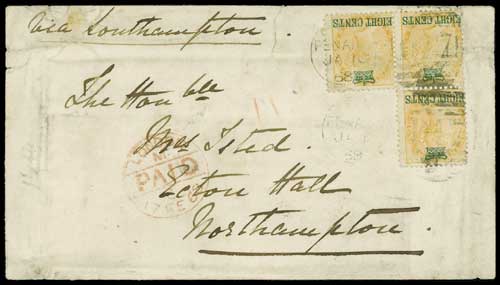 via Southampton
The Hon ble
Mrs Isted.
Ecton Hall
Northampton.
EIGHT CENTS
EIGHT CENTS
EIGHT CENTS
PENA
JA
68
PAID